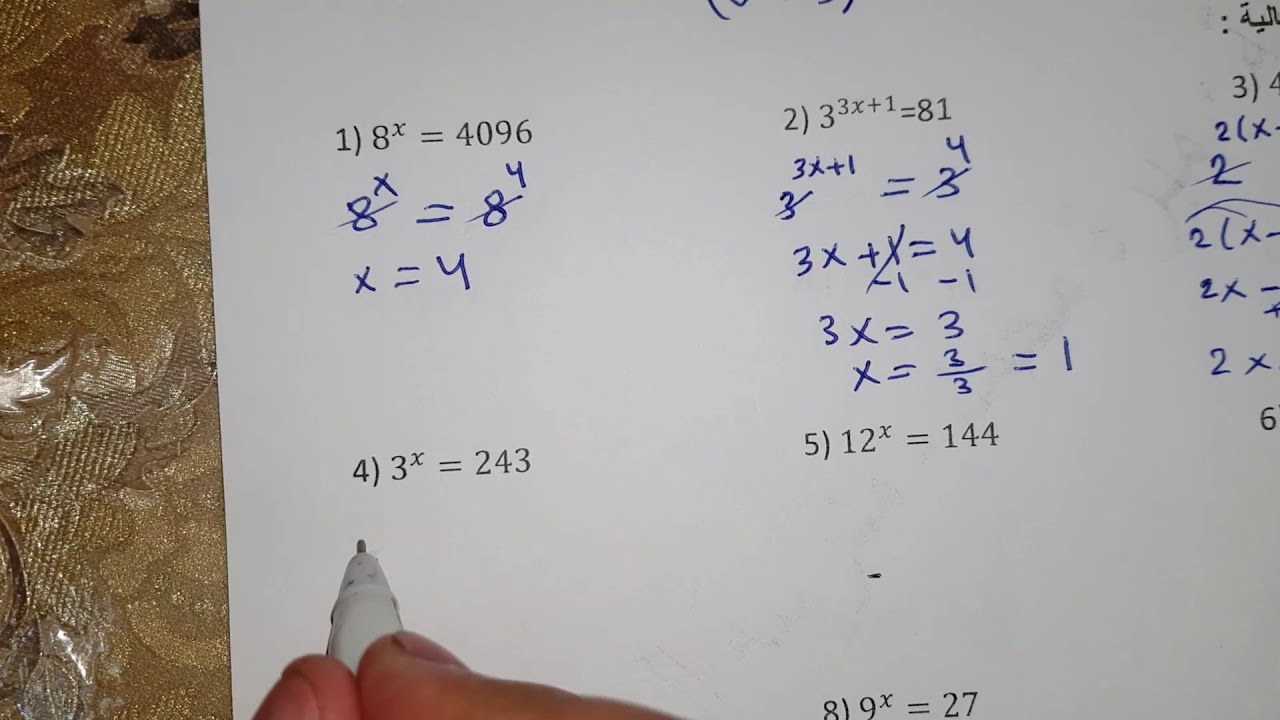 : الية
1) 8ˣ = 4096
8ˣ = 8⁴
x = 4
2) 3³ˣ⁺¹=81
3³ˣ⁺¹ = 3⁴
3x + 1 = 4
-1 -1
3x = 3
x = 3/3 = 1
3) 4
2(x-
2
2(x-
2x -
2x
4) 3ˣ = 243
5) 12ˣ = 144
6
8) 9ˣ = 27